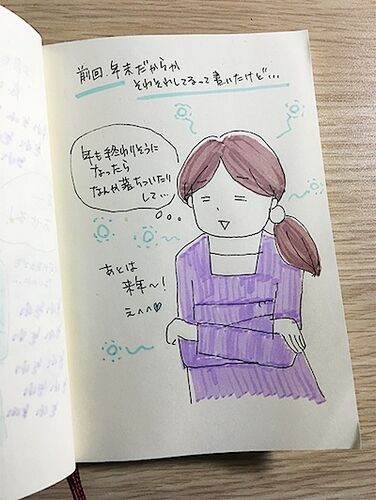 前回、年末だからか
そわそわしてるって書いたけど…
年も終わりそうに
なったら
なんか落ちついたり
して…
あとは
来年〜！
えへへ♡